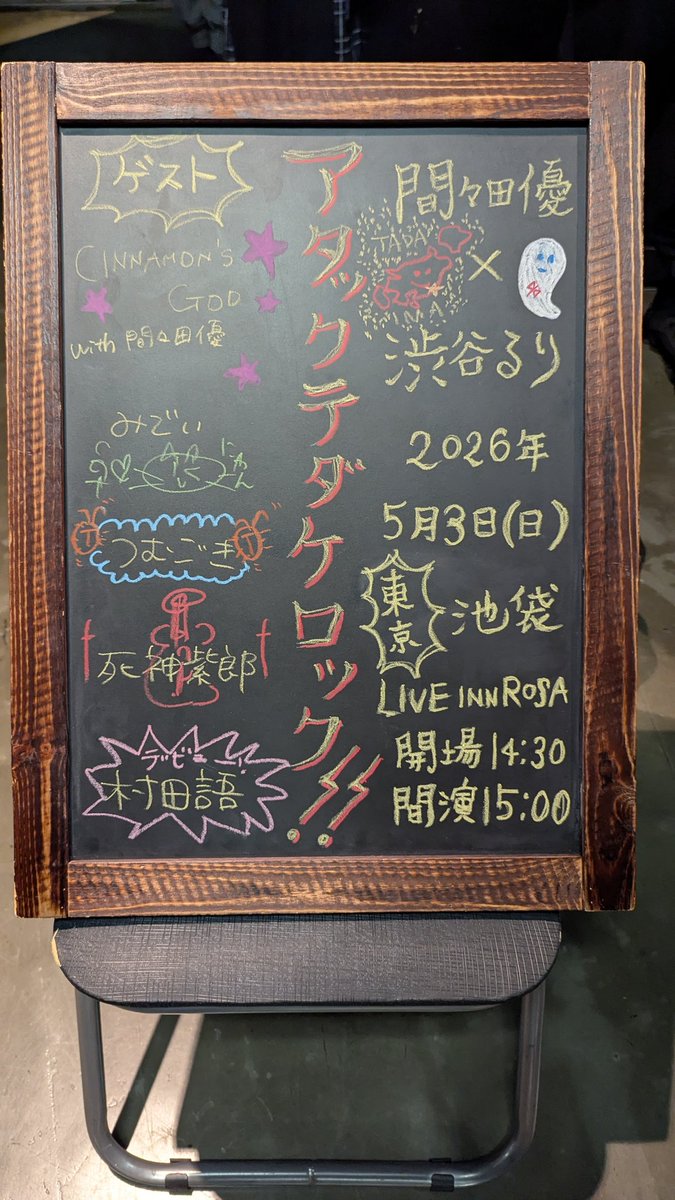 間々田優
×
渋谷るり
2026年
5月3日(日)
東京 池袋
LIVE INN ROSA
開場14:30
間演15:00
アタックテダケロック!!
ゲスト
CINNAMON'S
GOD
with 間々田優
みでぃ
つむごき
死神紫郎
デビュー!
村田語